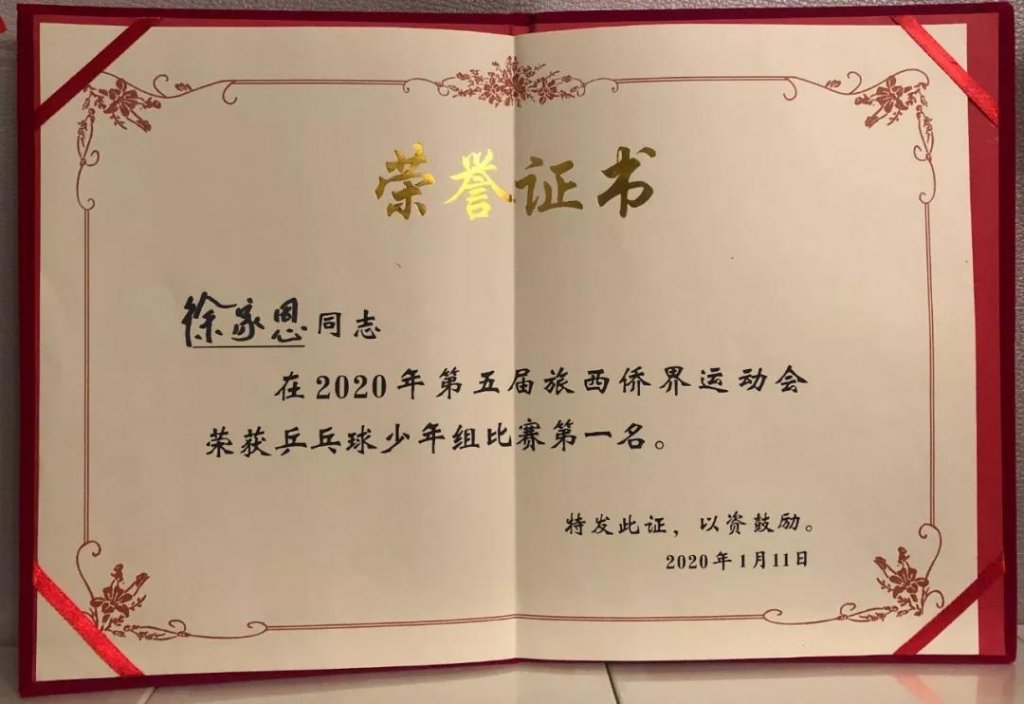 荣誉证书
徐家恩同志
在2020年第五届旅西侨界运动会
荣获乒乓球少年组比赛第一名。
特发此证，以资鼓励。
2020年1月11日